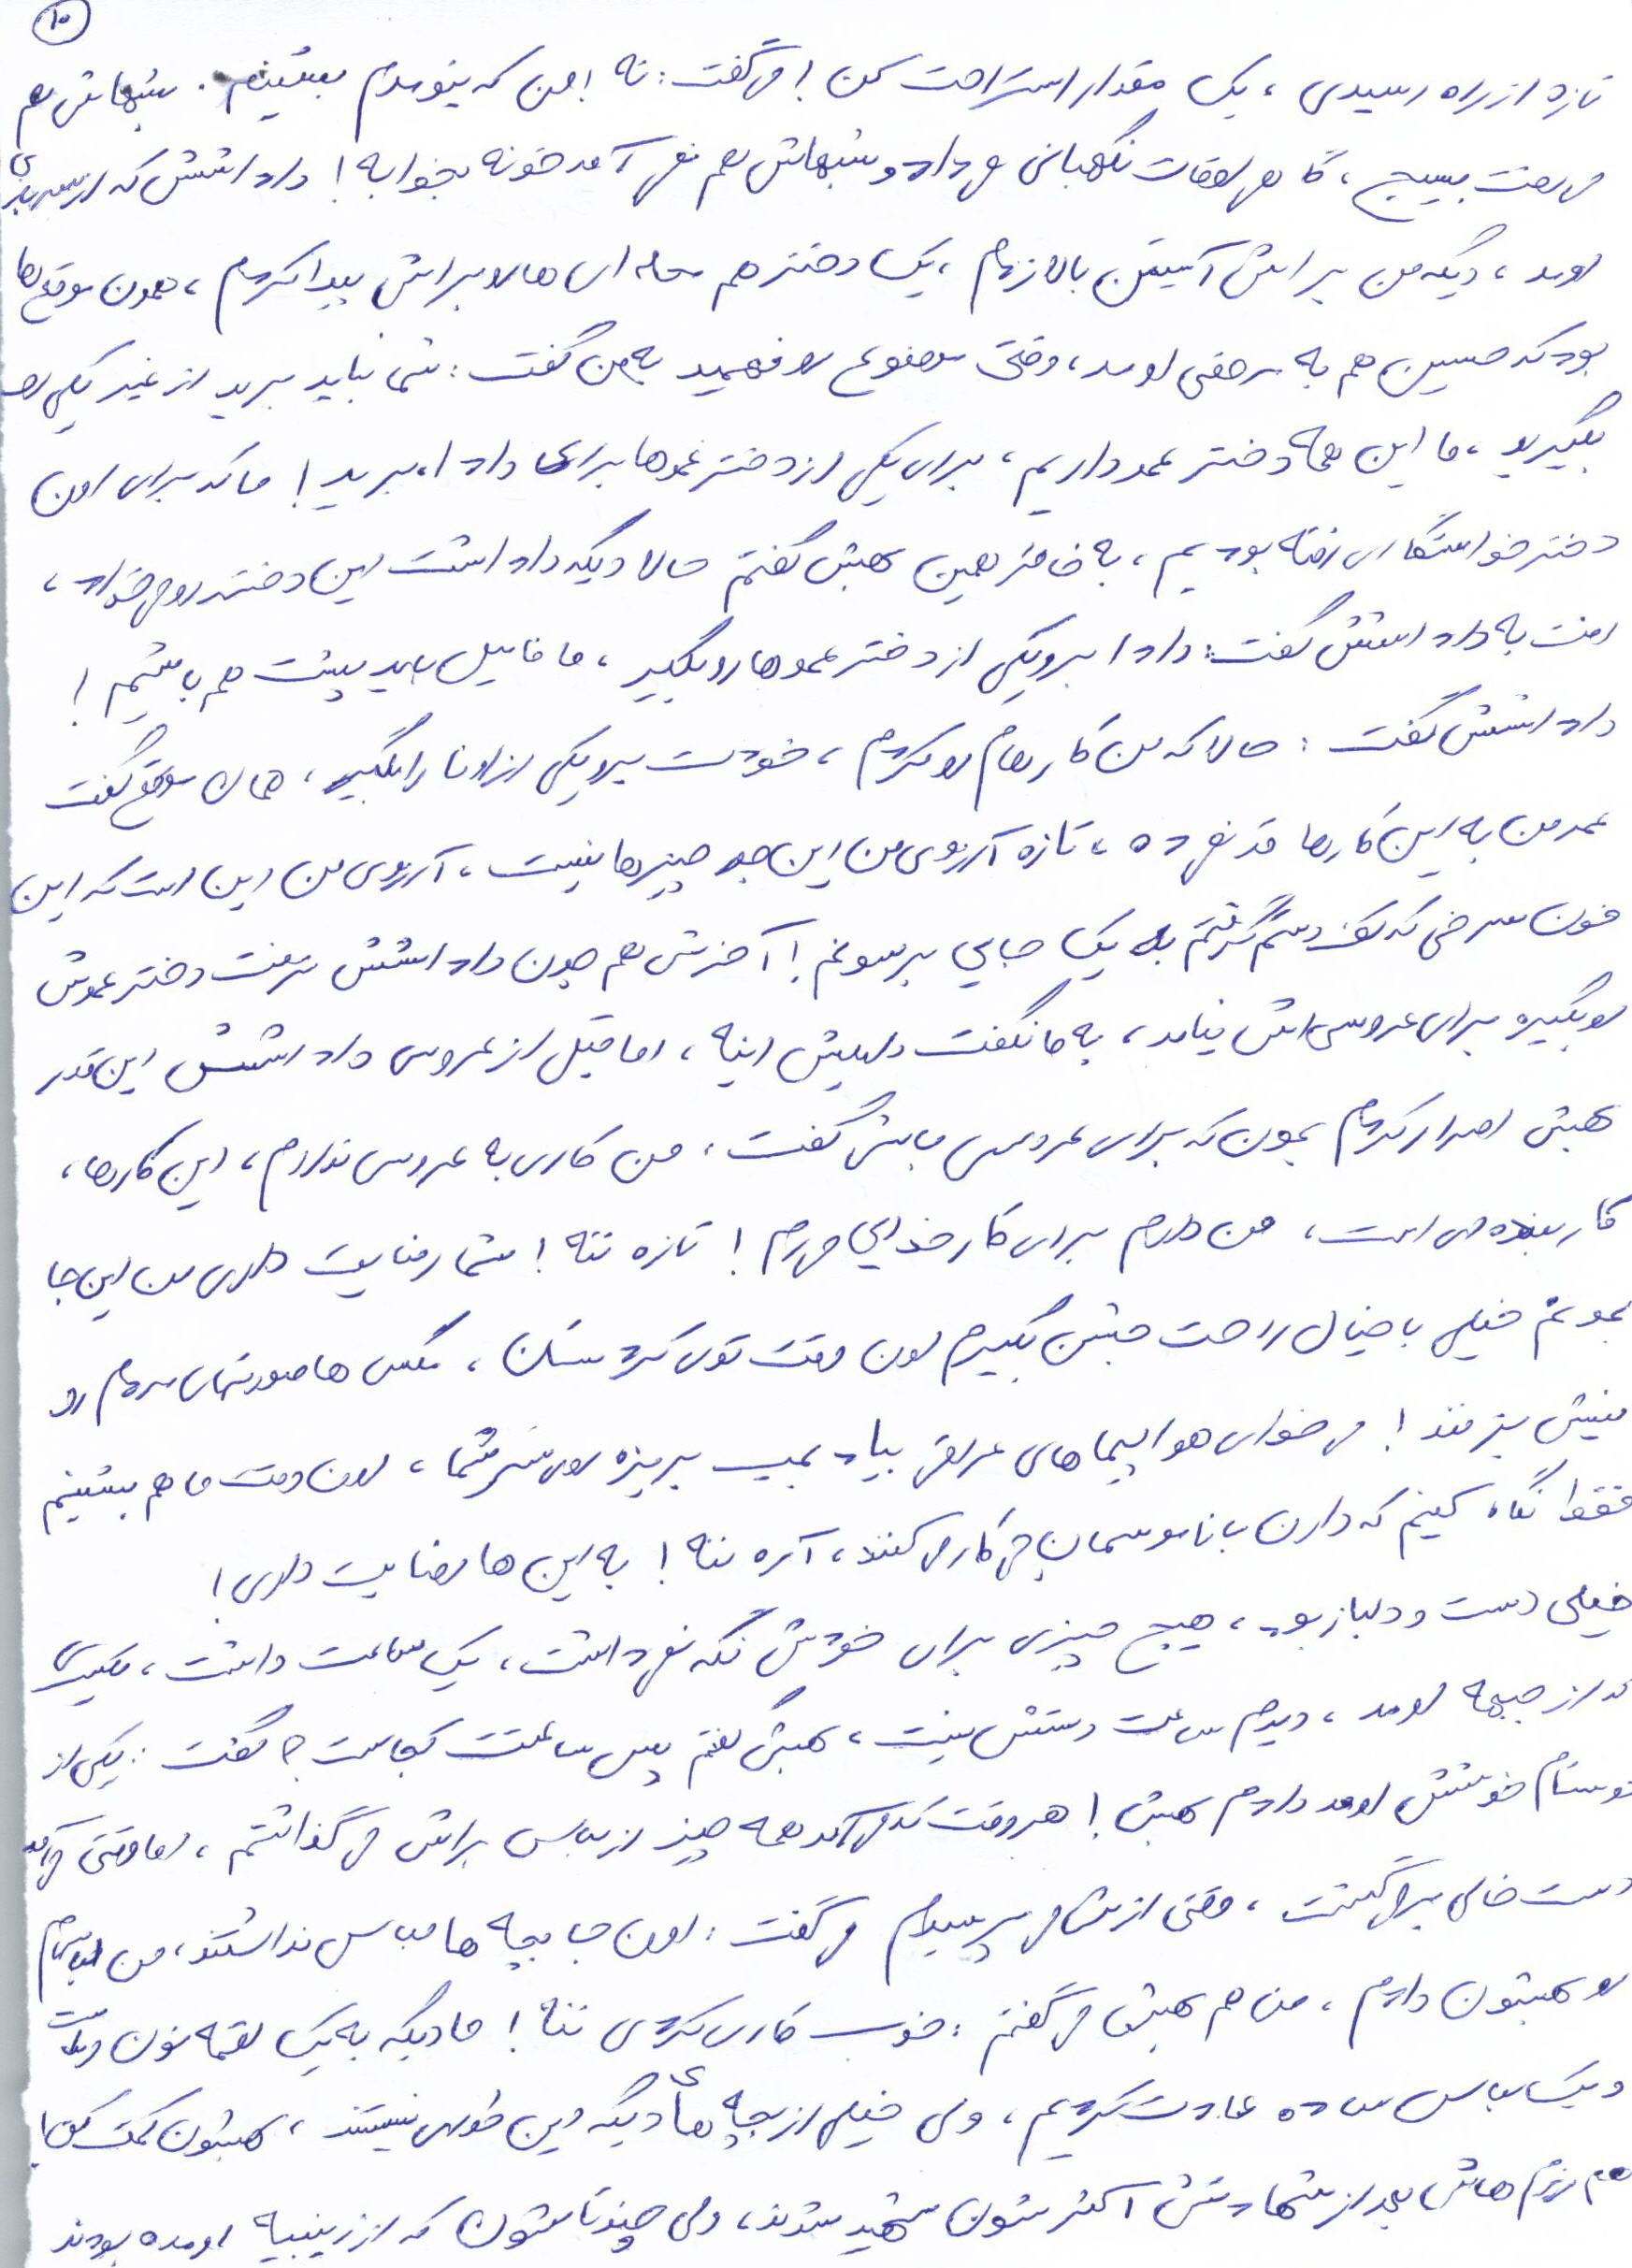 ۱۰
تازه از راه رسیدی، یک مقدار استراحت کن! می‌گفت: نه! من که نیومدم بشینم. شبهاش هم
می رفت بسیج، گاهی اوقات نگهبانی می داد و شبهاش هم نمی آمد خونه بخوابه! داداشش که از سربازی
اومد، دیگه من براش آستین بالا زدم، یک دختر هم محله ای ها رو براش پیدا کردم، همون موقع ها
بود که حسین هم به مرخصی اومد، وقتی موضوع رو فهمید به من گفت: شما نباید برید از غیر یکی رو
بگیرید، ما این همه دختر عمو داریم، برای یکی از دختر عموها برای داداش برید! ما که برای اون
دختر خواستگاری رفته بودیم، به خاطر همین بهش گفتم حالا دیگه داداشت این دختر رو می خواد،
رفت به داداشش گفت: داداش برو یکی از دختر عموها رو بگیر، ما فامیل باید پشت هم باشیم!
داداشش گفت: حالا که من کارهام رو کردم، خودت برو یکی از اونا را بگیر، همان موقع گفت
عمر من به این کارها قد نمی ده، تازه آرزوی من این جور چیزها نیست، آرزوی من این است که این
خون سرخی که کف دستم گرفتم به یک جایی برسونم! آخرش هم چون داداشش نرفت دختر عموش
رو بگیره برای عروسی اش نیامد، به ما نگفت دلیلش اینه، اما قبل از عروسی داداشش این قدر
بهش اصرار کردم بمون که برای عروسی باش گفت، من کاری به عروسی ندارم، این کارها،
کار بنده ای است، من دارم برای کار خدایی می رم! تازه ننه! شما رضایت داری من این جا
بمونم خیلی با خیال راحت جشن بگیرم اون وقت توی کردستان، مگس ها صورتهای مردم رو
نیش بزنند! می خوای هواپیماهای عراقی بیاد بمب بریزه روی سر شما، اون وقت ما هم بشینیم
فقط نگاه کنیم که دارن با ناموسمان چی کار می کنند، آره ننه! به این ها رضایت داری!
خیلی دست و دلباز بود، هیچ چیزی برای خودش نگه نمی داشت، یک ساعت داشت، یکسری
که از جبهه اومد، دیدم ساعت دستش نیست، بهش گفتم پس ساعتت کجاست؟ گفت: یکی از
دوستام خوشش اومد دادم بهش! هر وقت که می آمد همه چیز از لباس براش می گذاشتم، اما وقتی می آمد
دست خالی بر می گشت، وقتی ازش می پرسیدم می گفت: اون جا بچه ها لباس نداشتند، من لباسهام
رو بهشون دادم، من هم بهش می گفتم: خوب کاری کردی ننه! ما دیگه به یک لقمه نون و ماست
و یک لباس ساده عادت کردیم، ولی خیلی از بچه های دیگه این طوری نیستند، بهشون کمک کن!
هم رزم هاش بعد از شهادتش اکثرشون شهید شدند، ولی چند تا شون که از زینبیه اومده بودند